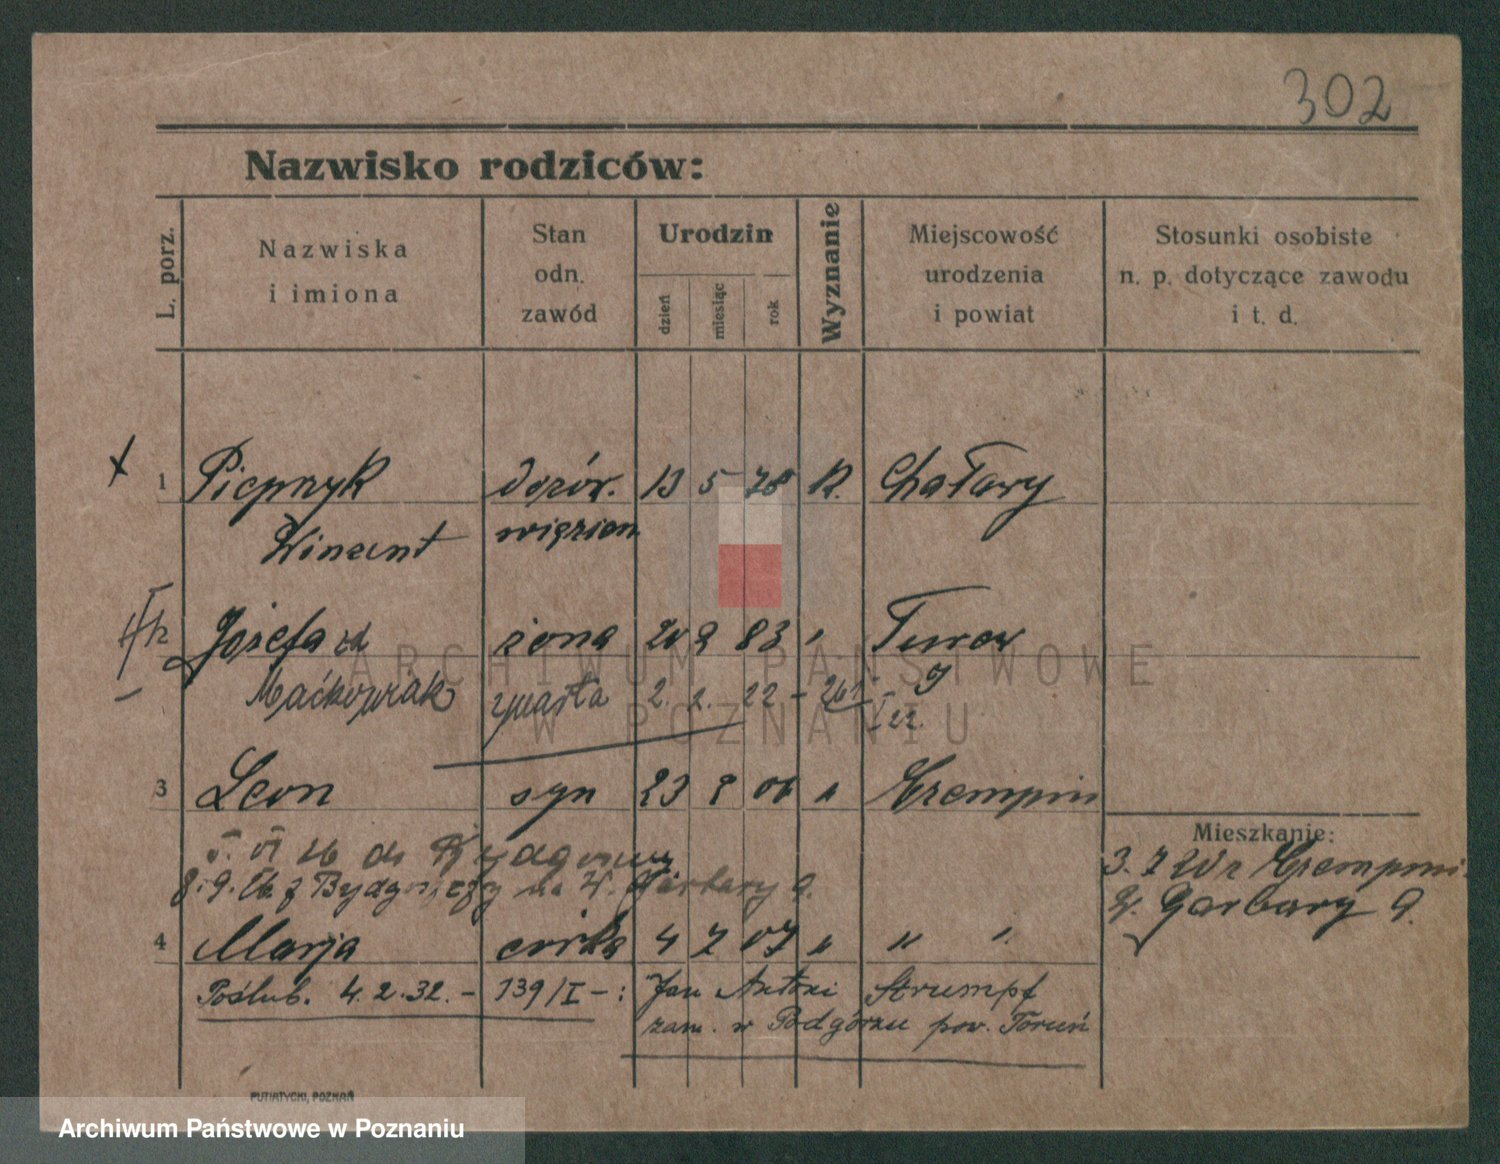 302
Nazwisko rodziców:
L. porz.
Nazwiska
i imiona
Stan
odn.
zawód
Urodzin
dzień
miesiąc
rok
Wyznanie
Miejscowość
urodzenia
i powiat
Stosunki osobiste
n. p. dotyczące zawodu
i t. d.
1 Pieprzyk dozór. 13 5 78 R. Chaławy
Wincent więzien
2 Józefa zd żona 20 9 83 " Turew
Maćkowiak zmarła 2. 2. 22 - 261
I 22.
3 Leon syn 23 8 06 " Krempin
Mieszkanie:
VI 26 do Bydgoszczy
3. 7 Krempin
8.9. 26 z Bydgoszczy na W. Garbary 9.
W. Garbary 9.
4 Marja córka 4 7 07 " " "
Poślub. 4.2.32. - 139/I - : Jan Antoni Strumpf
zam. w Podgórzu pow. Toruń
PUTIATYCKI, POZNAŃ
ARCHIWUM PAŃSTWOWE
W POZNANIU
Archiwum Państwowe w Poznaniu